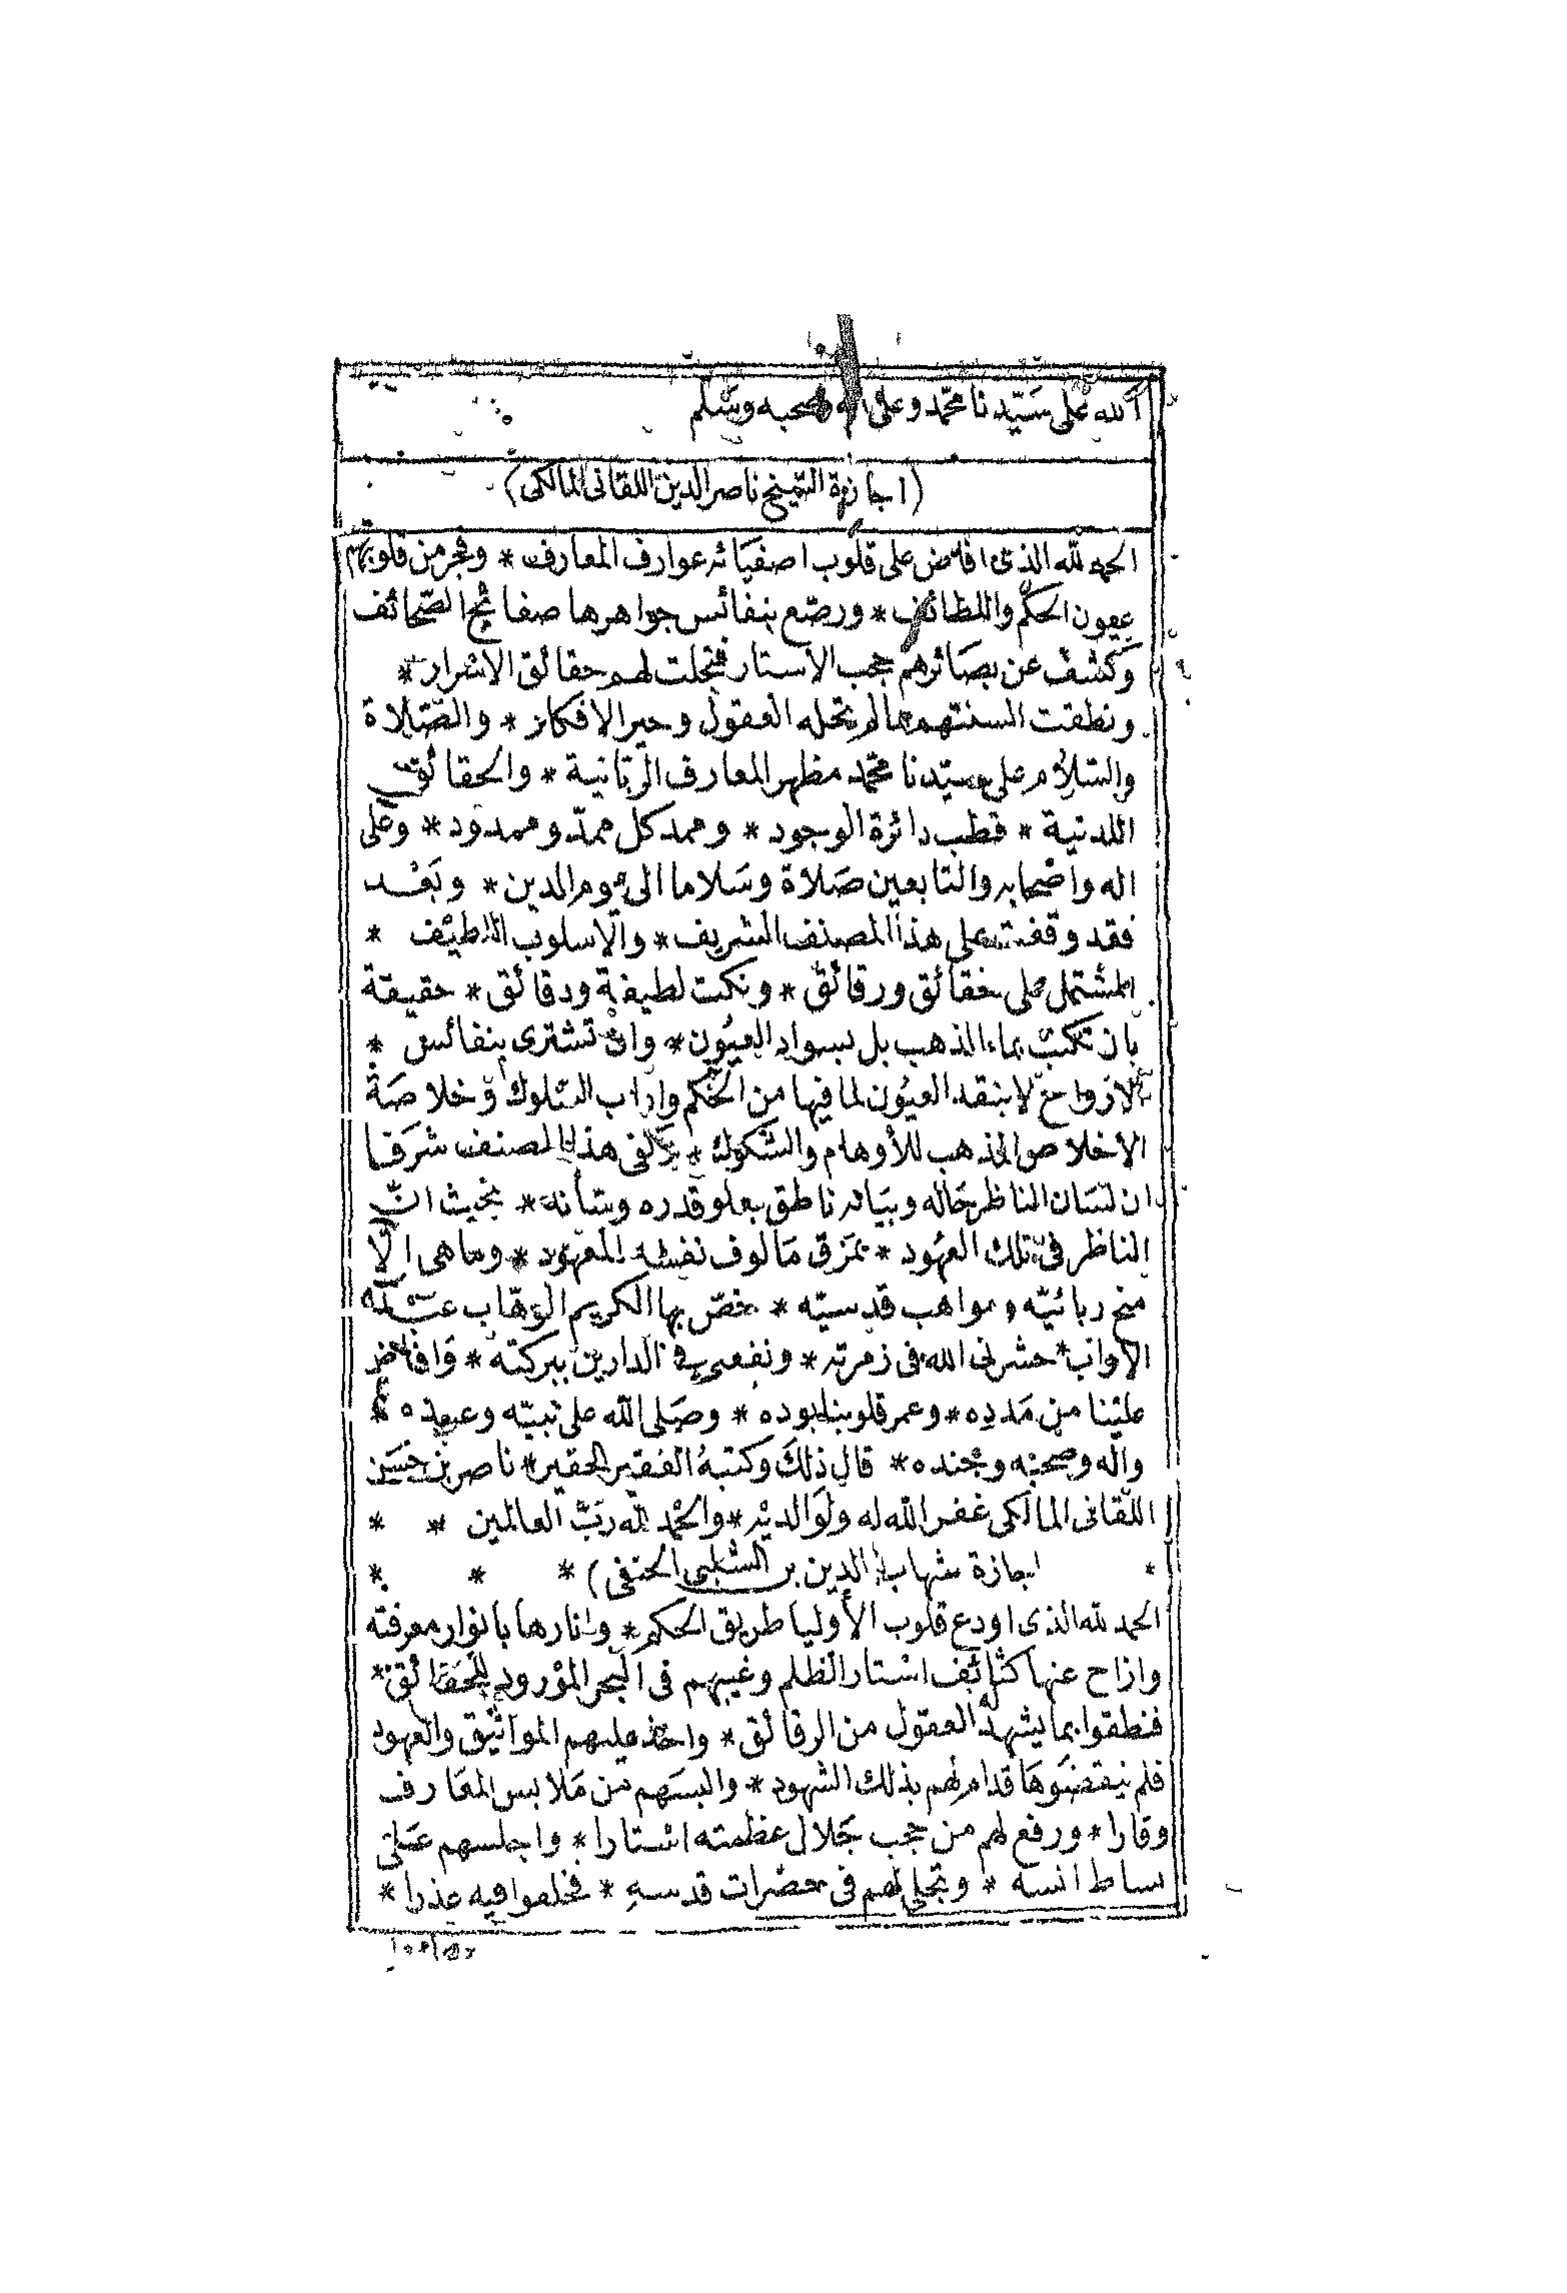 الله على سيدنا محمد وعلى اله وصحبه وسلم
(اجازة الشيخ ناصر الدين اللقانى المالكى)
الحمد لله الذى افاض على قلوب اصفيائه عوارف المعارف * وفجر من قلوبهم
عيون الحكم واللطائف * ورصع بنفائس جواهرها صفائح الصحائف
وكشف عن بصائرهم حجب الاستار فتجلت لهم حقائق الاسرار *
ونطقت السنتهم بمالم تحله العقول وحير الافكار * والصلاة
والسلام على سيدنا محمد مظهر المعارف الربانية * والحقائق
اللدنية * قطب دائرة الوجود * وممد كل ممد وممدود * وعلى
اله واصحابه والتابعين صلاة وسلاما الى يوم الدين * وبعد
فقد وقفت على هذا المصنف الشريف * والاسلوب اللطيف *
المشتمل على حقائق ورقائق * ونكت لطيفة ودقائق * حقيقة
بان تكتب بماء الذهب بل بسواد العيون * وان تشترى بنفائس *
الارواح لا بنقد العيون لما فيها من الحكم واداب السلوك وخلاصة
الاخلاص المذهب للأوهام والشكوك * كفى هذا المصنف شرفا
ان لسان الناظر بحاله وبيانه ناطق بعلو قدره وشأنه * بحيث ان
الناظر فى تلك العهود * تمزق مالوف نفسه المعهود * وما هى الا
منح ربانيه ومواهب قدسيه * خص بها الكريم الوهاب عبده
الاواب * حشرنى الله فى زمرته * ونفعنى فى الدارين ببركته * وافاض
علينا من مدده * وعمر قلوبنا بوده * وصلى الله على نبيه وعبده *
واله وصحبه وجنده * قال ذلك وكتبه الفقير الحقير * ناصر بن حسن
اللقانى المالكى غفر الله له ولوالديه * والحمد لله رب العالمين * *
* اجازة شهاب الدين بن الشلبى الحنفى) * * *
الحمد لله الذى اودع قلوب الأوليا طريق الحكم * وانارها بانوار معرفته
وازاح عنها كثائف استار الظلم وغيبهم فى البحر المورود للحقائق *
فنطقوا بما يشهد العقول من الرقائق * واخذ عليهم المواثيق والعهود
فلم ينقضوها قدام لهم بذلك الشهود * والبسهم من ملابس المعارف
وقارا * ورفع لهم من حجب جلال عظمته استارا * واجلسهم على
بساط انسه * وتجلى لهم فى حضرات قدسه * فخلعوا فيه عذرا *